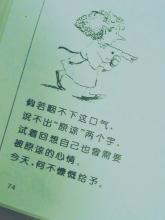 假若咽不下这口气，
说不出“原谅”两个字，
试着回想自己也曾需要
被原谅的心情。
今天，何不慷慨给予。
74